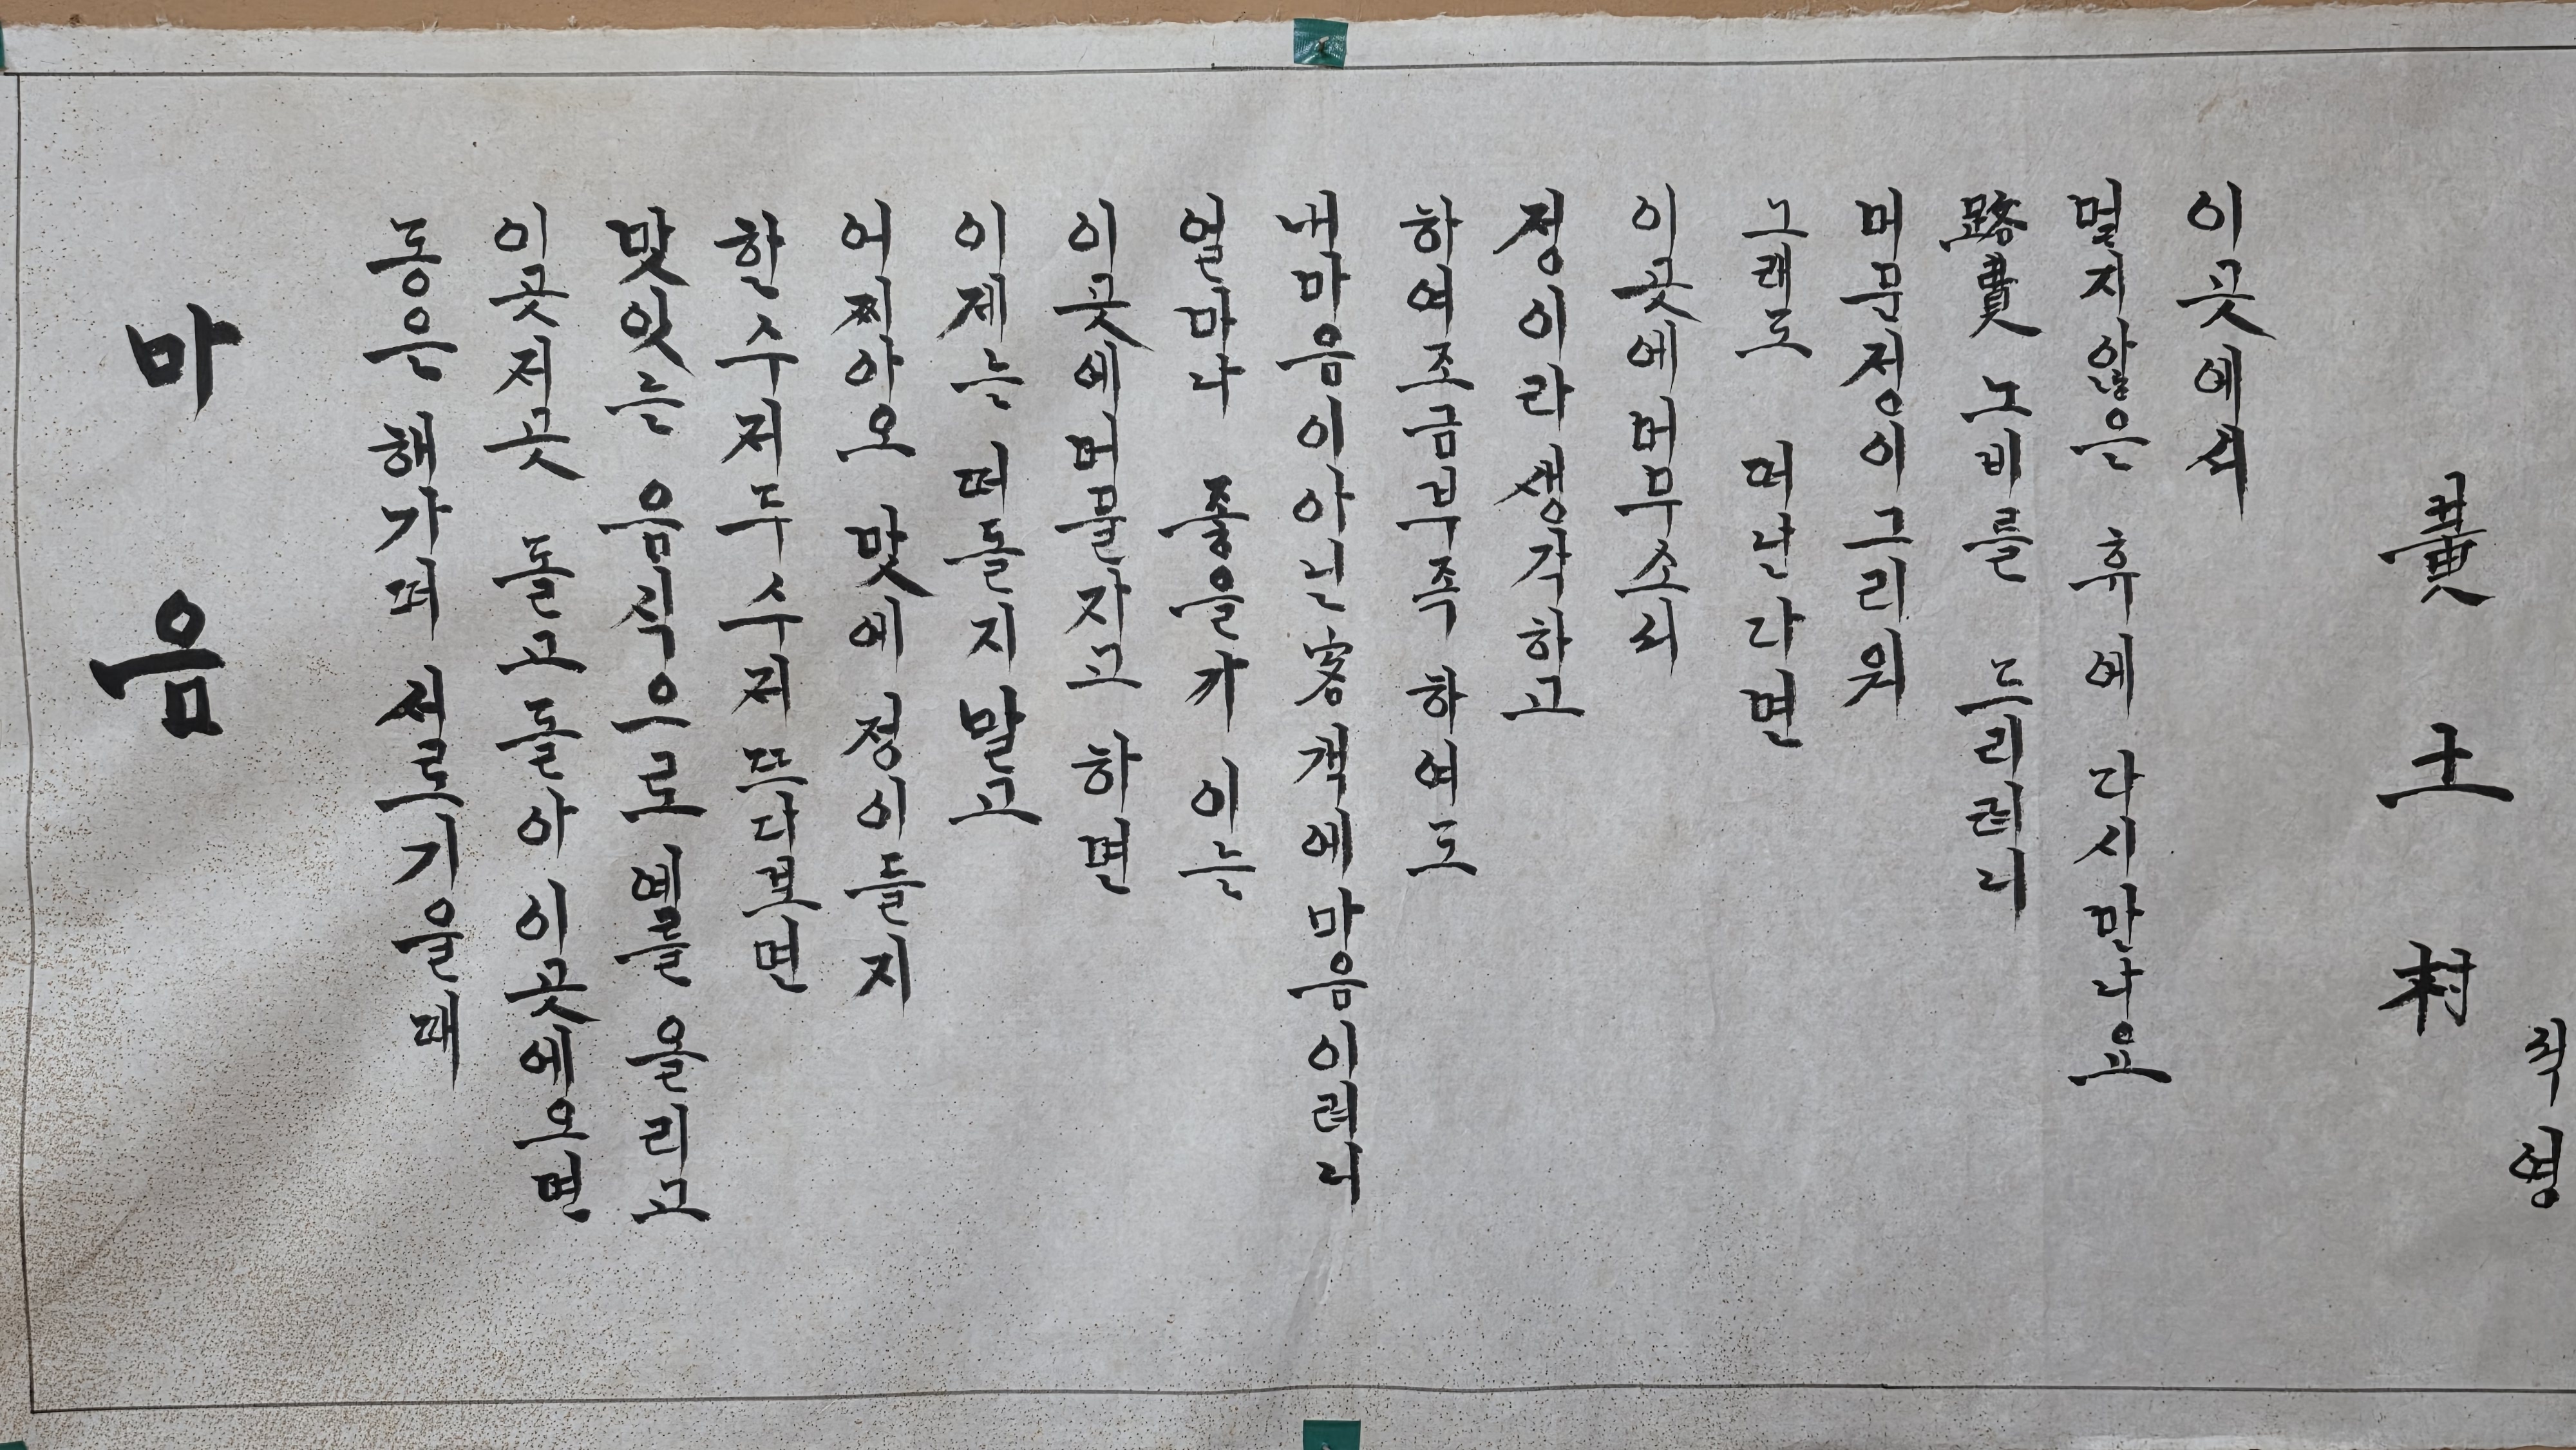 마음
동은 해가떠 서로기울때
이곳저곳 돌고돌아 이곳에오면
맛잇는 음식으로 예를 올리고
한수저두수저 뜨다보면
어찌아오 맛에 정이들지
이제는 떠돌지 말고
이곳에머물자고 하면
얼마나 좋을가 이는
내마음이아닌 客객에마음이려니
하여조금부족 하여도
정이라생각하고
이곳에머무소서
그래도 떠난다면
머문정이그리워
路費 노비를 드리려니
멀지않은 휴에 다시만나요
이곳에서
黃土村